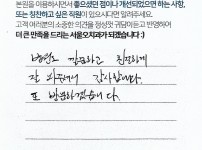 본원을 이용하시면서 좋으셨던 점이나 개선되었으면 하는 사항,
또는 칭찬하고 싶은 직원이 있으시다면 알려주세요.
고객 여러분의 소중한 의견을 정성껏 귀담아듣고 반영하여
더 큰 만족을 드리는 서울오치과가 되겠습니다 :)
병원도 깔끔하고 친절하게
잘 해주셔서 감사합니다.
또 방문하겠습니다.